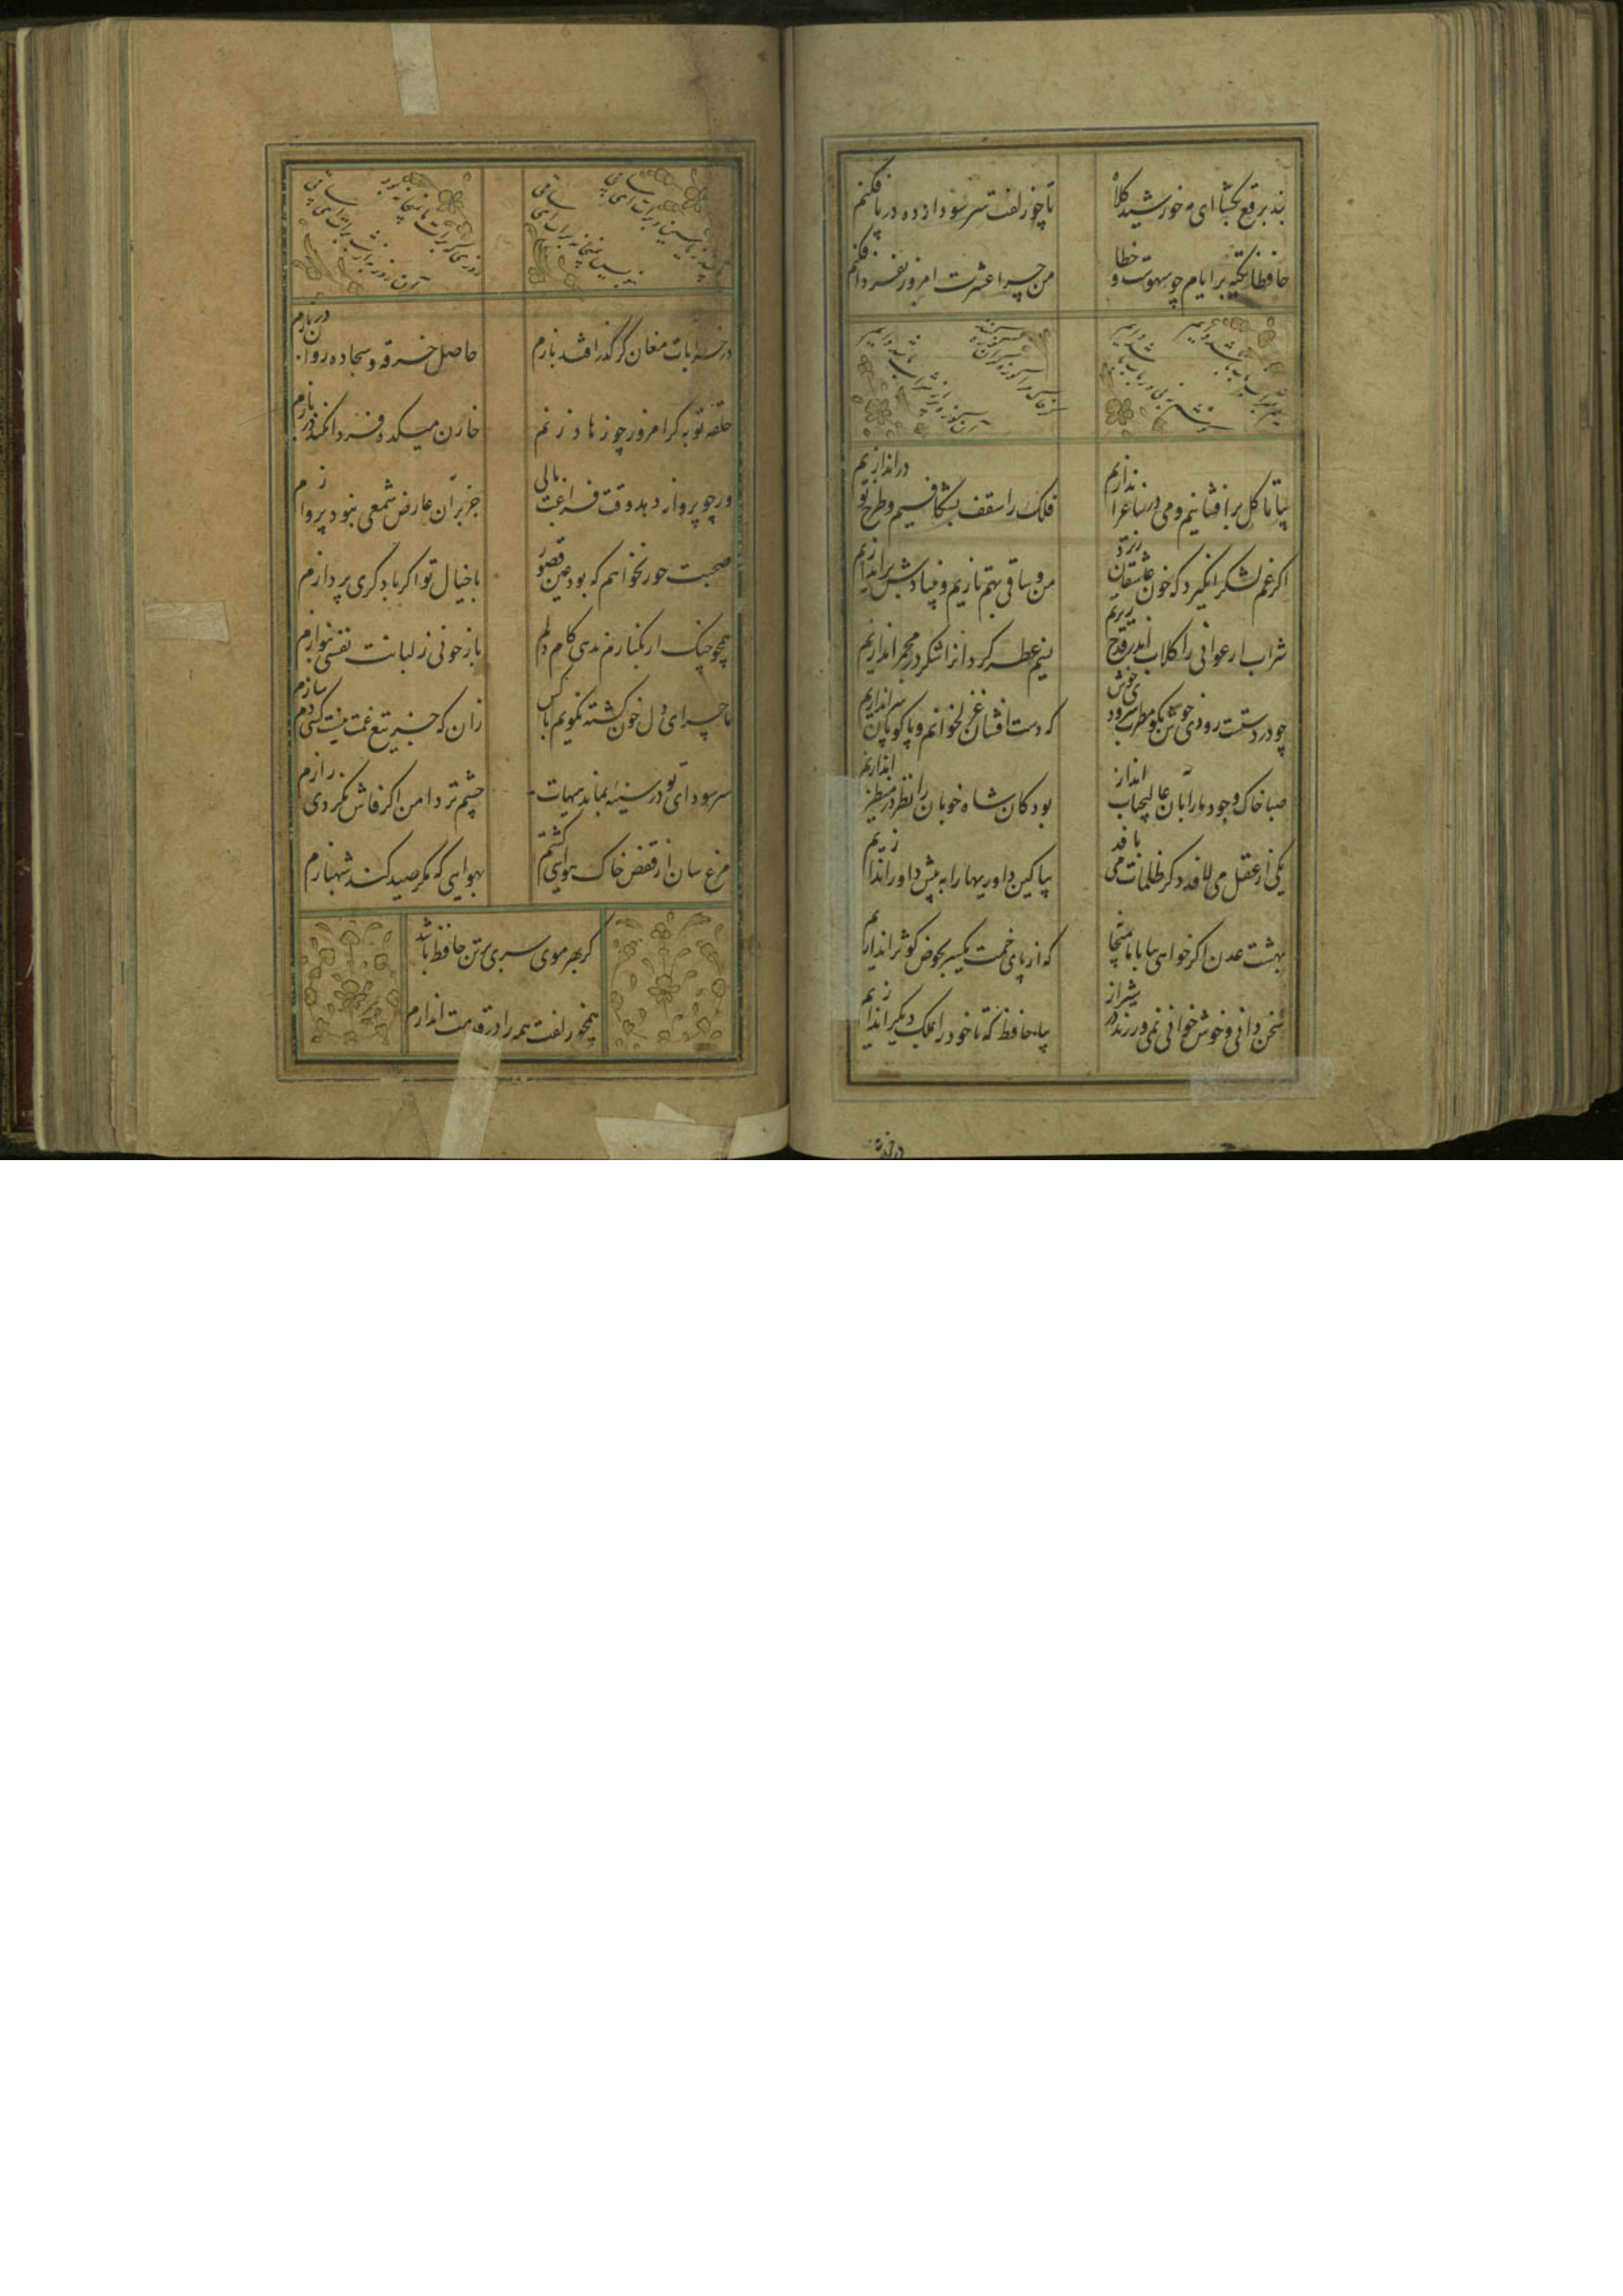 بند برقع بکشا ای مه خورشید کلاه
تا چو زلفت سر سودازده در پا فکنم
حافظا تکیه بر ایام چو سهوست و خطا
من چرا عشرت امروز بفردا فکنم
بیا تا کل برافشانیم و می در ساغر اندازیم
فلک را سقف بشکافیم و طرح نو دراندازیم
اکر غم لشکر انکیزد که خون عاشقان ریزد
من و ساقی بهم تازیم و بنیادش براندازیم
شراب ارغوانی را کلاب اندر قدح ریزیم
نسیم عطر کردانرا شکر در مجمر اندازیم
چو در دستست رودی خوش بکو مطرب سرودی خوش
که دست افشان غزل خوانیم و پاکوبان سر اندازیم
صبا خاک وجود ما را بآن عالیجناب انداز
بود کان شاه خوبان را نظر در منظر اندازیم
یکی از عقل می لافد دکر طامات می بافد
بیا کین داوریها را به پیش داور اندازیم
بهشت عدن اکر خواهی بیا با ما بمیخانه
که از پای خمت یکسر بحوض کوثر اندازیم
سخن دانی و خوش خوانی نمی ورزند در شیراز
بیا حافظ که تا خود را بملک دیکر اندازیم
در خرابات مغان کر کذر افتد بازم
حاصل خرقه و سجاده روان دربازم
حلقه توبه کر امروز چو زهاد زنم
خازن میکده فردا نکند در بازم
ور چو پروانه دهد وقت فراغت بالی
جز بر آن عارض شمعی نبود پروازم
صحبت حور نخواهم که بود عین قصور
با خیال تو اکر با دکری پردازم
همچو چنک ار بکنارم ندهی کام دلم
باز چونی ز لبانت نفسی بنوازم
ماجرای دل خون کشته نکویم با کس
زان که جز تیغ غمت نیست کسی دم سازم
سر سودای تو در سینه بماندی هیهات
چشم تردامن اکر فاش نکردی رازم
مرغ سان از قفص خاک هوایی کشتم
بهوایی که مکر صید کند شهبازم
کر بهر موی سری بر تن حافظ باشد
همچو زلفت همه را در قدمت اندازم